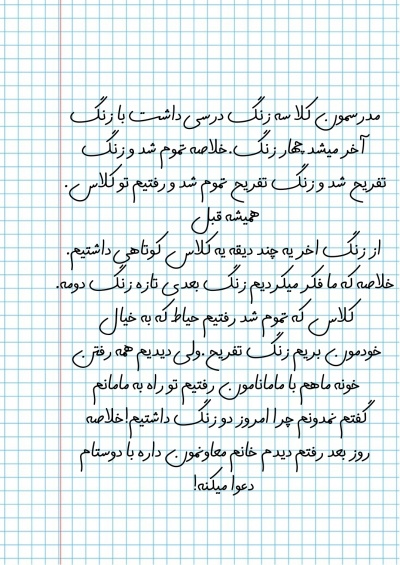 مدرسمون کلا سه زنگ درسی داشت با زنگ
آخر میشد چهار زنگ.خلاصه تموم شد و زنگ
تفریح شد و زنگ تفریح تموم شد و رفتیم تو کلاس.
همیشه قبل
از زنگ اخر یه چند دیقه یه کلاس کوتاهی داشتیم.
خلاصه که ما فکر میکردیم زنگ بعدی تازه زنگ دومه.
کلاس که تموم شد رفتیم حیاط که به خیال
خودمون بریم زنگ تفریح.ولی دیدیم همه رفتن
خونه ماهم با مامانامون رفتیم تو راه به مامانم
گفتم نمدونم چرا امروز دو زنگ داشتیم!خلاصه
روز بعد رفتم دیدم خانم معاونمون داره با دوستام
دعوا میکنه!